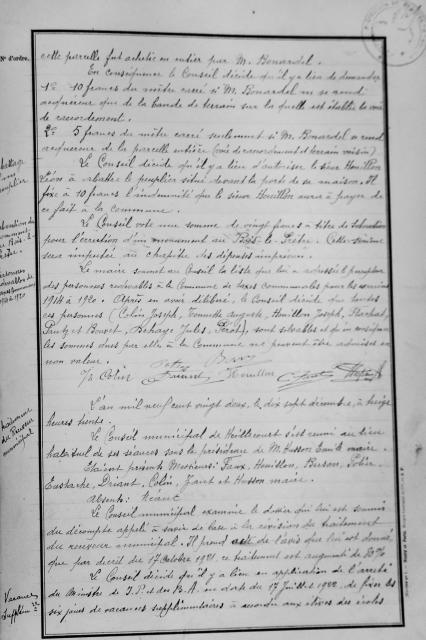 N° d'ordre.
cette parcelle fut achetée en entier par M. Bonardel.
En conséquence le Conseil décide qu'il y a lieu de demander
1° 10 francs du mètre carré si M. Bonardel ne se rend
acquéreur que de la bande de terrain sur laquelle est établie la voie
de raccordement.
2° 5 francs du mètre carré seulement si M. Bonardel se rend
acquéreur de la parcelle entière (voie de raccordement et terrain voisin)
Le Conseil décide qu'il y a lieu d'autoriser le sieur Houillon
Léon à abattre le peuplier situé devant la porte de sa maison. Il
fixe à 10 francs l'indemnité que le sieur Houillon aura à payer de
ce fait à la commune.
Le Conseil vote une somme de vingt francs à titre de subvention
pour l'érection d'un monument au Bois-le-Prêtre. Cette somme
sera imputée au chapitre des dépenses imprévues.
Le maire soumet au Conseil la liste que lui a adressée le percepteur
des personnes redevables à la Commune de taxes communales pour les années
1914 à 1920. Après en avoir délibéré, le Conseil décide que toutes
ces personnes (Colin Joseph, auguste, Houillon Joseph,
et Bouvet, Jules, ), sont solvables et qu'en conséquence
les sommes dues par elles à la Commune ne peuvent être admises en
non valeur.
Colin Houillon
L'an mil neuf cent vingt deux, le dix sept décembre, à treize
heures trente.
Le Conseil municipal de s'est réuni au lieu
habituel de ses séances sous la présidence de M. Husson Emile maire.
Etaient présents Messieurs: Faux, Houillon, Buron,
Eustache, Driant, Colin, et Husson maire.
Absents: Néant
Le Conseil municipal examine le dossier qui lui est soumis
du décompte appelé à servir de base à la révision du traitement
du receveur municipal. Il prend acte de l'avis qui lui est donné,
que par décret du 17 Octobre 1921, ce traitement est augmenté de %
Le Conseil décide qu'il y a lieu en application de l'arrêté
du Ministre de I.P. et des B.A. en date du 17 Juillet 1922, de fixer les
six jours de vacances supplémentaires à accorder aux élèves des écoles
Abattage
peuplier
Subvention
monument
Bois-le-
Prêtre
1914 à 1920
Traitement
du Receveur
municipal
Vacances
Supplém<sup>res</sup>